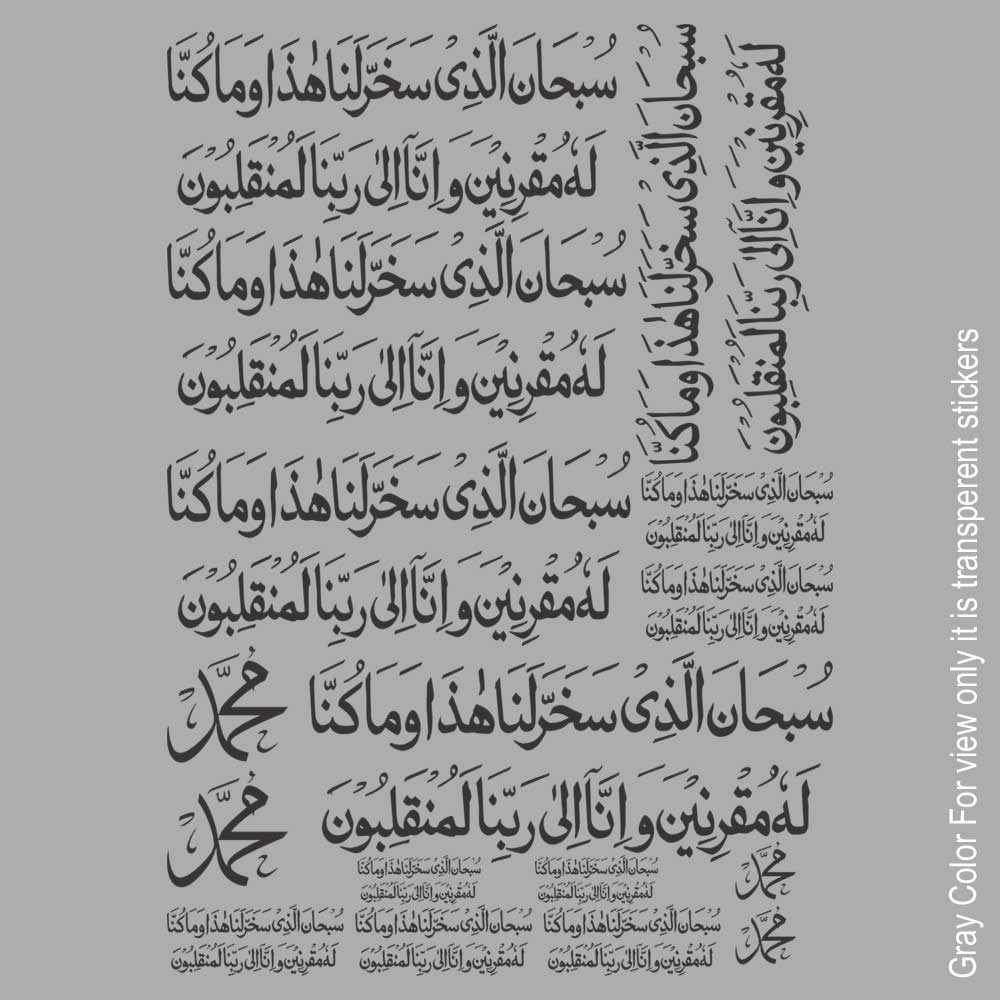 سُبْحَانَ الَّذِىْ سَخَّرَلَنَا هٰذَا وَمَا كُنَّا
لَهٗ مُقْرِنِيْنَ وَ اِنَّآ اِلٰى رَبِّنَا لَمُنْقَلِبُوْنَ
سُبْحَانَ الَّذِىْ سَخَّرَلَنَا هٰذَا وَمَا كُنَّا
لَهٗ مُقْرِنِيْنَ وَ اِنَّآ اِلٰى رَبِّنَا لَمُنْقَلِبُوْنَ
سُبْحَانَ الَّذِىْ سَخَّرَلَنَا هٰذَا وَمَا كُنَّا
لَهٗ مُقْرِنِيْنَ وَ اِنَّآ اِلٰى رَبِّنَا لَمُنْقَلِبُوْنَ
سُبْحَانَ الَّذِىْ سَخَّرَلَنَا هٰذَا وَمَا كُنَّا
لَهٗ مُقْرِنِيْنَ وَ اِنَّآ اِلٰى رَبِّنَا لَمُنْقَلِبُوْنَ
سُبْحَانَ الَّذِىْ سَخَّرَلَنَا هٰذَا وَمَا كُنَّا
لَهٗ مُقْرِنِيْنَ وَ اِنَّآ اِلٰى رَبِّنَا لَمُنْقَلِبُوْنَ
سُبْحَانَ الَّذِىْ سَخَّرَلَنَا هٰذَا وَمَا كُنَّا
لَهٗ مُقْرِنِيْنَ وَ اِنَّآ اِلٰى رَبِّنَا لَمُنْقَلِبُوْنَ
سُبْحَانَ الَّذِىْ سَخَّرَلَنَا هٰذَا وَمَا كُنَّا
لَهٗ مُقْرِنِيْنَ وَ اِنَّآ اِلٰى رَبِّنَا لَمُنْقَلِبُوْنَ
محمد
محمد
سُبْحَانَ الَّذِىْ سَخَّرَلَنَا هٰذَا وَمَا كُنَّا
لَهٗ مُقْرِنِيْنَ وَ اِنَّآ اِلٰى رَبِّنَا لَمُنْقَلِبُوْنَ
سُبْحَانَ الَّذِىْ سَخَّرَلَنَا هٰذَا وَمَا كُنَّا
لَهٗ مُقْرِنِيْنَ وَ اِنَّآ اِلٰى رَبِّنَا لَمُنْقَلِبُوْنَ
محمد
محمد
سُبْحَانَ الَّذِىْ سَخَّرَلَنَا هٰذَا وَمَا كُنَّا
لَهٗ مُقْرِنِيْنَ وَ اِنَّآ اِلٰى رَبِّنَا لَمُنْقَلِبُوْنَ
سُبْحَانَ الَّذِىْ سَخَّرَلَنَا هٰذَا وَمَا كُنَّا
لَهٗ مُقْرِنِيْنَ وَ اِنَّآ اِلٰى رَبِّنَا لَمُنْقَلِبُوْنَ
سُبْحَانَ الَّذِىْ سَخَّرَلَنَا هٰذَا وَمَا كُنَّا
لَهٗ مُقْرِنِيْنَ وَ اِنَّآ اِلٰى رَبِّنَا لَمُنْقَلِبُوْنَ
Gray Color For view only it is transperent stickers